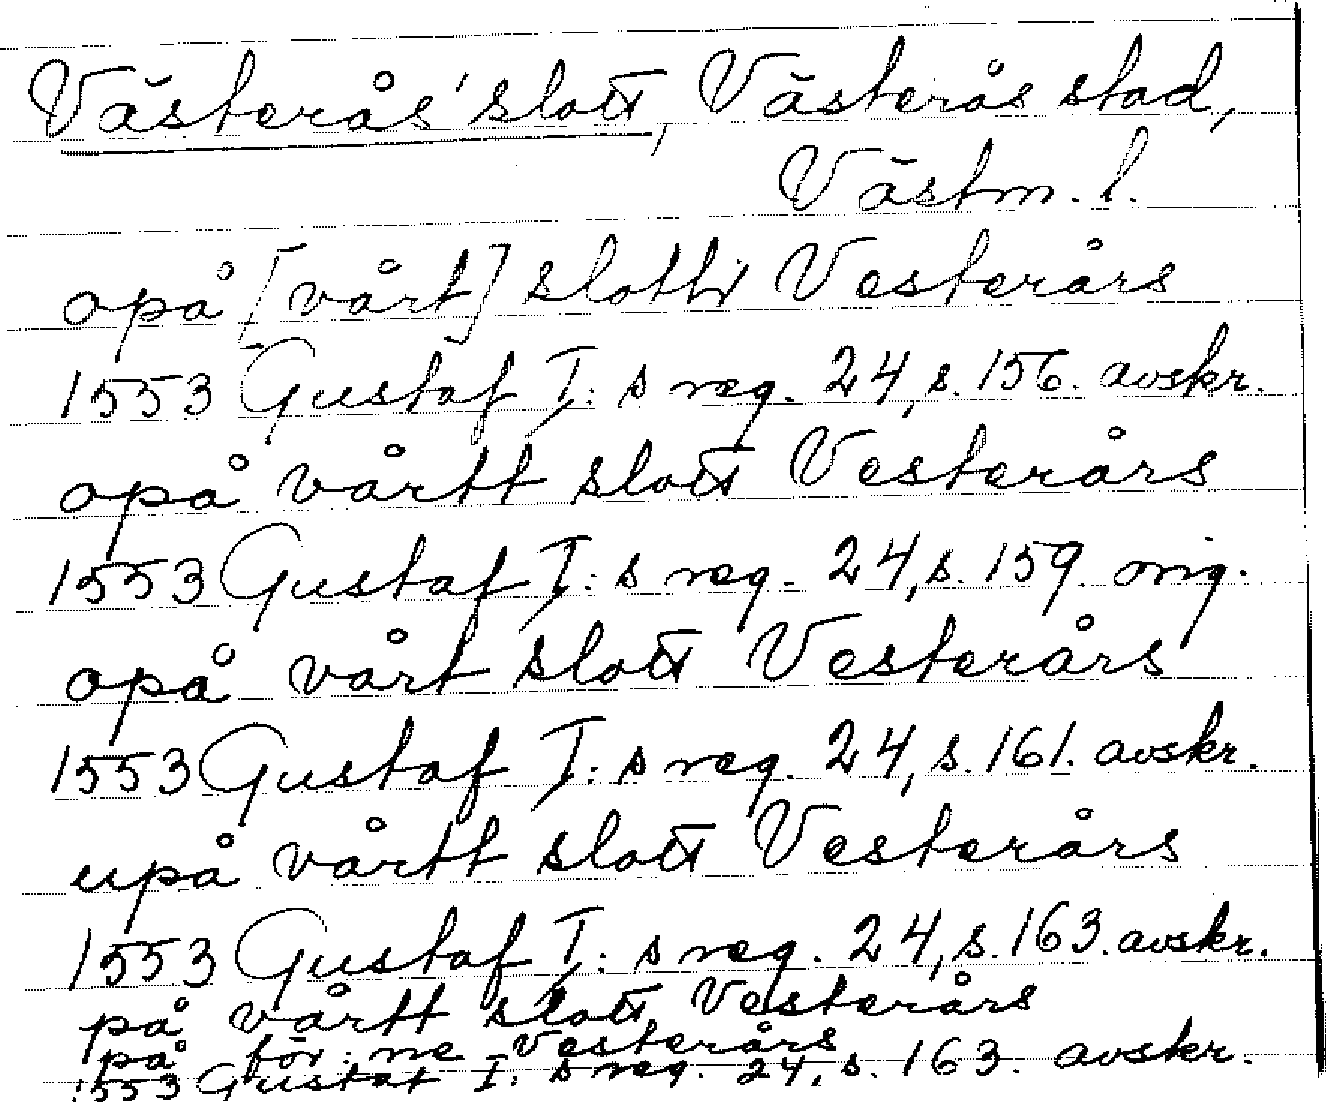 Västerås' slott, Västerås stad,
Västm. l.
opå [vårt] slotth Vesterårs
1553 Gustaf I:s reg. 24, s. 156. avskr.
opå vårtt slott Vesterårs
1553 Gustaf I:s reg. 24, s. 159. orig.
opå vårt slott Vesterårs
1553 Gustaf I:s reg. 24, s. 161. avskr.
upå vårtt slott Vesterårs
1553 Gustaf I:s reg. 24, s. 163. avskr.
på vårtt slott Vesterårs
på för:ne Vesterårs
1553 Gustaf I:s reg. 24, s. 163. avskr.